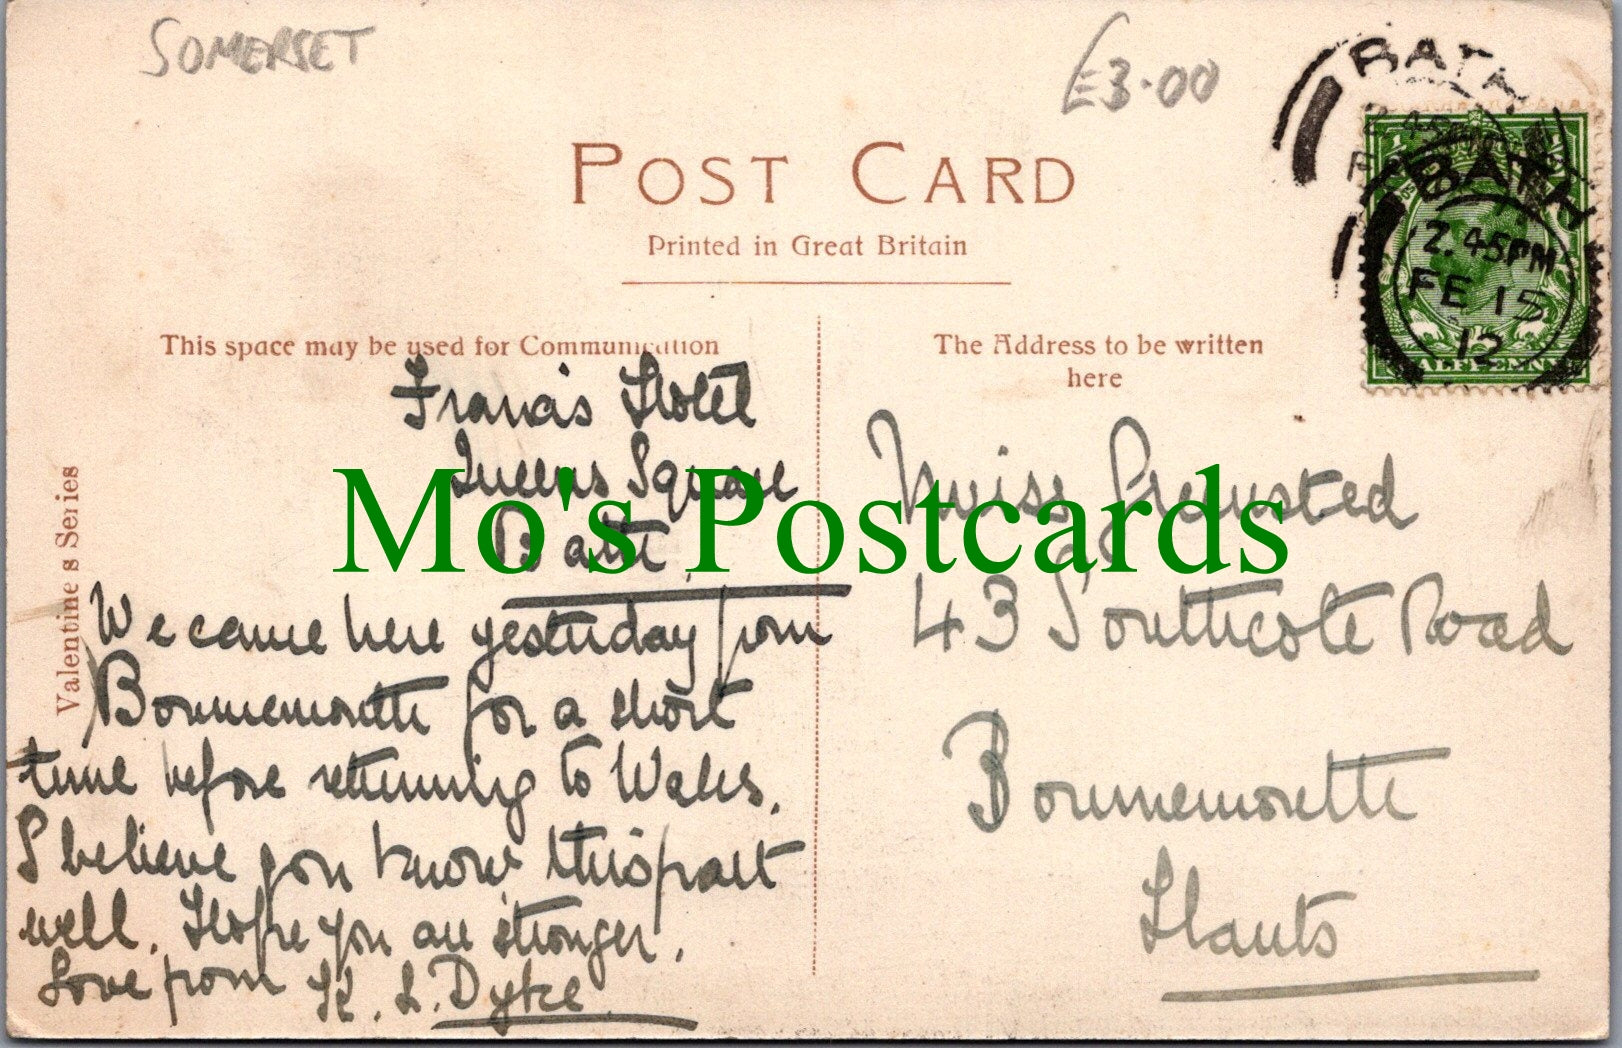 SOMERSET
£3.00
BATH
BATH
2.45PM
FE 15
12
HALFPENNY
POST CARD
Printed in Great Britain
This space may be used for Communication
The Address to be written
here
Valentine's Series
Francis Hotel
Queens Square
Bath.
We came here yesterday from
Bournemouth for a short
time before returning to Wales.
I believe you know this part
well. Hope you are stronger.
Love from K. L. Dyke
Miss
43 Southcote Road
Bournemouth
Hants
Mo's Postcards